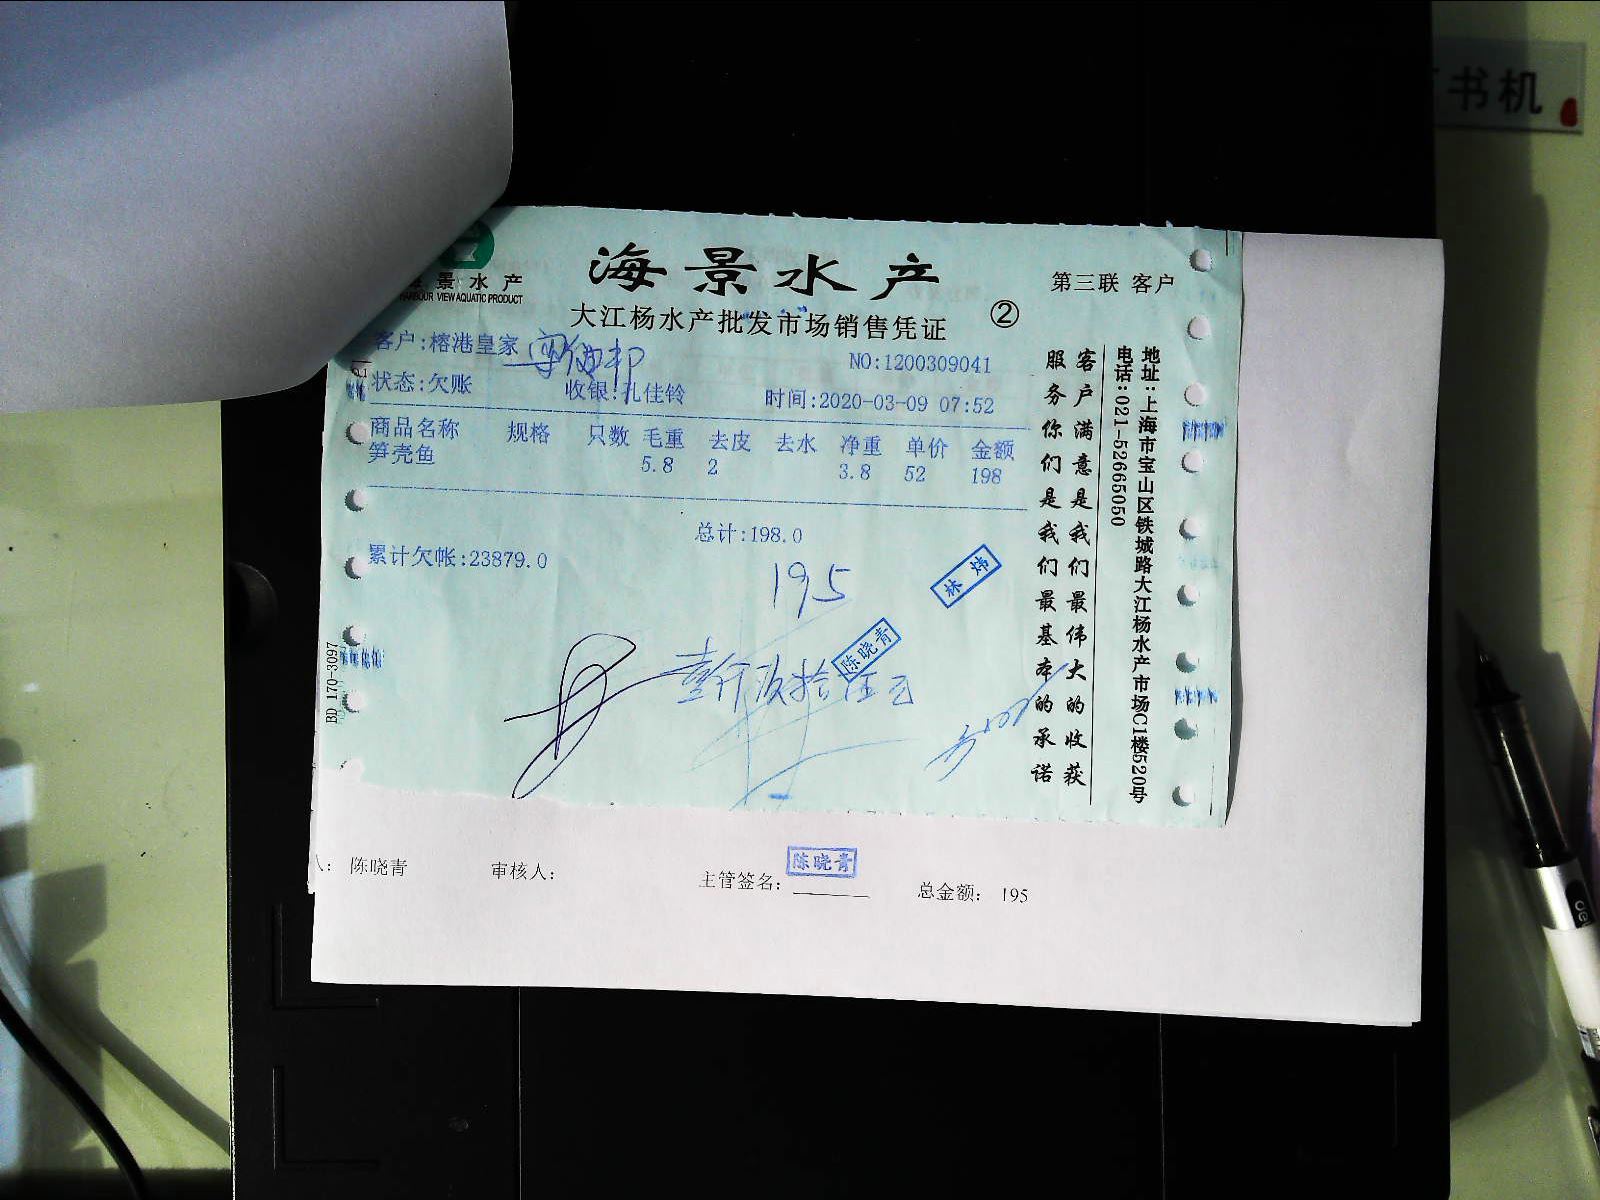 书机
景水产
HARBOUR VIEW AQUATIC PRODUCT
海景水产
第三联 客户
大江杨水产批发市场销售凭证 ②
客户:榕港皇家
NO:1200309041
状态:欠账 收银:孔佳铃 时间:2020-03-09 07:52
商品名称 规格 只数 毛重 去皮 去水 净重 单价 金额
笋壳鱼 5.8 2 3.8 52 198
总计:198.0
累计欠帐:23879.0
195
林炜
陈晓青
客户满意是我们最伟大的收获
服务你们是我们最基本的承诺
地址:上海市宝山区铁城路大江杨水产市场C1楼520号
电话:021-52665050
BD 170-3097
人: 陈晓青 审核人: 主管签名: 陈晓青 总金额: 195